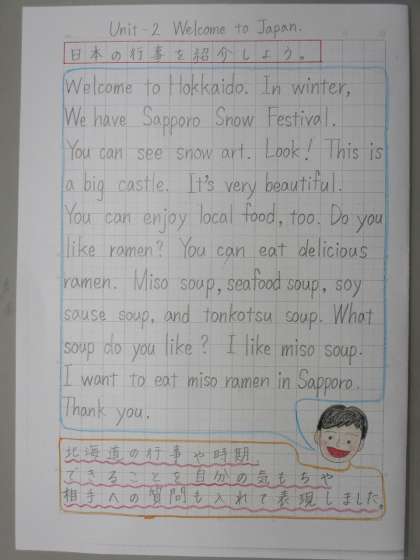 Unit-2 Welcome to Japan.
日本の行事を紹介しよう。
Welcome to Hokkaido. In winter,
We have Sapporo Snow Festival.
You can see snow art. Look! This is
a big castle. It's very beautiful.
You can enjoy local food, too. Do you
like ramen? You can eat delicious
ramen. Miso soup, seafood soup, soy
sause soup, and tonkotsu soup. What
soup do you like? I like miso soup.
I want to eat miso ramen in Sapporo.
Thank you.
北海道の行事や時期、
できることを自分の気もちや
相手への質問も入れて表現しました。